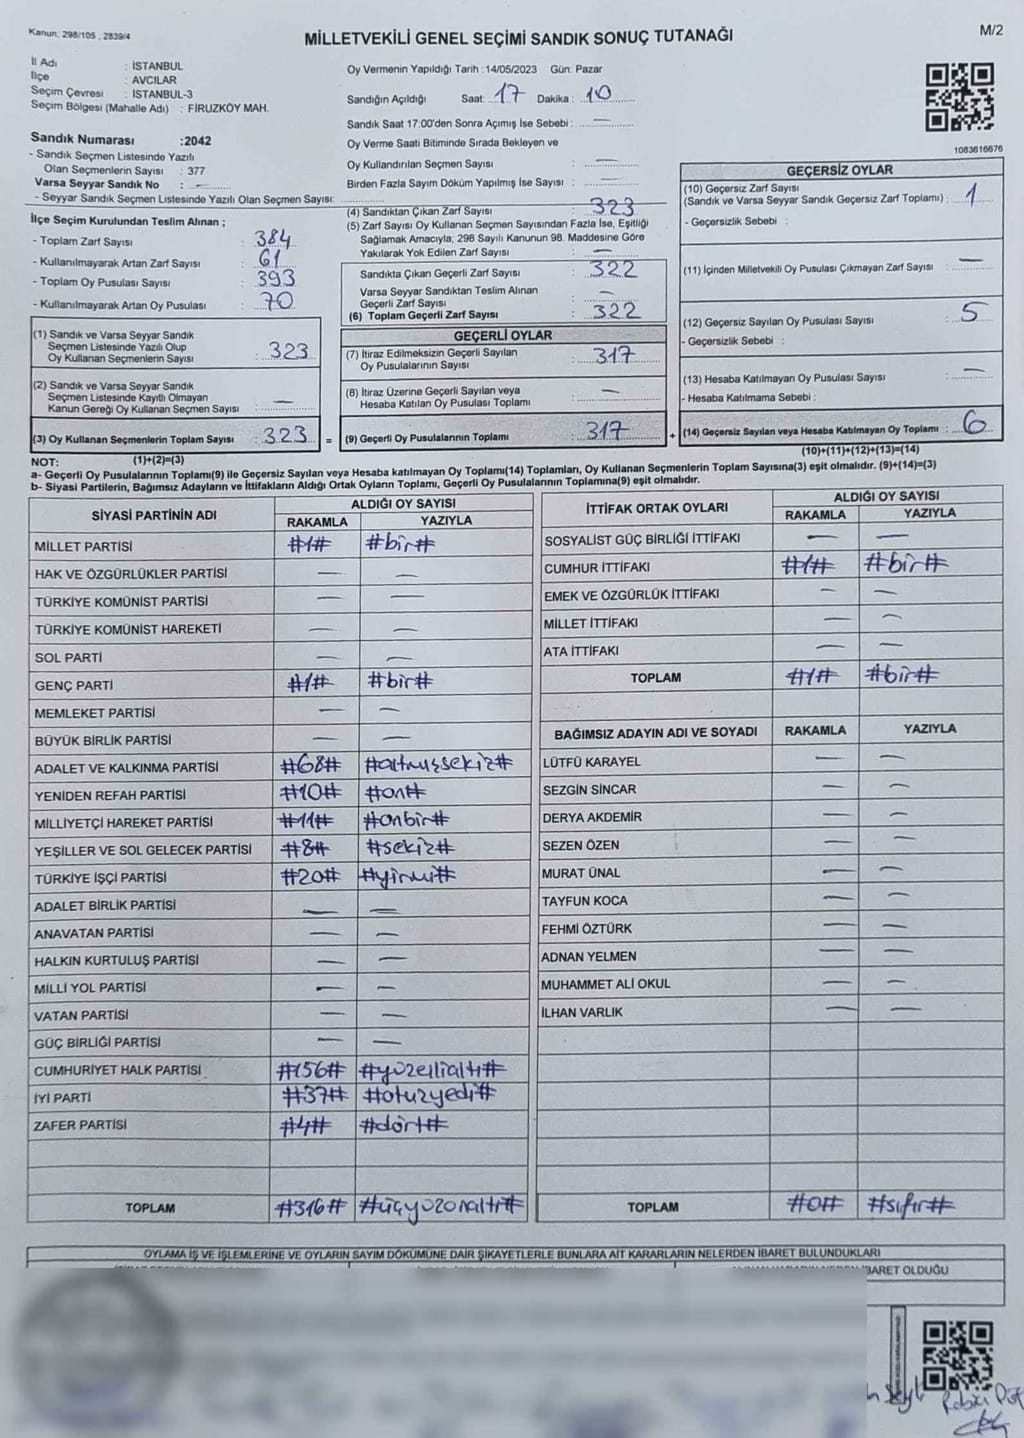 Kanun; 298/105 , 2839/4
MİLLETVEKİLİ GENEL SEÇİMİ SANDIK SONUÇ TUTANAĞI
M/2
İl Adı : İSTANBUL
İlçe : AVCILAR
Seçim Çevresi : İSTANBUL-3
Seçim Bölgesi (Mahalle Adı) : FİRUZKÖY MAH.
Sandık Numarası :2042
- Sandık Seçmen Listesinde Yazılı
Olan Seçmenlerin Sayısı : 377
Varsa Seyyar Sandık No : —
- Seyyar Sandık Seçmen Listesinde Yazılı Olan Seçmen Sayısı:
İlçe Seçim Kurulundan Teslim Alınan ;
- Toplam Zarf Sayısı : 384
- Kullanılmayarak Artan Zarf Sayısı : 61
- Toplam Oy Pusulası Sayısı : 393
- Kullanılmayarak Artan Oy Pusulası : 70
(1) Sandık ve Varsa Seyyar Sandık
Seçmen Listesinde Yazılı Olup
Oy Kullanan Seçmenlerin Sayısı : 323
(2) Sandık ve Varsa Seyyar Sandık
Seçmen Listesinde Kayıtlı Olmayan
Kanun Gereği Oy Kullanan Seçmen Sayısı : —
(3) Oy Kullanan Seçmenlerin Toplam Sayısı : 323 =
Oy Vermenin Yapıldığı Tarih :14/05/2023 Gün: Pazar
Sandığın Açıldığı Saat: 17 Dakika : 10
Sandık Saat 17:00'den Sonra Açımış İse Sebebi : —
Oy Verme Saati Bitiminde Sırada Bekleyen ve
Oy Kullandırılan Seçmen Sayısı : —
Birden Fazla Sayım Döküm Yapılmış İse Sayısı : —
(4) Sandıktan Çıkan Zarf Sayısı : 323
(5) Zarf Sayısı Oy Kullanan Seçmen Sayısından Fazla İse, Eşitliği
Sağlamak Amacıyla, 298 Sayılı Kanunun 98. Maddesine Göre
Yakılarak Yok Edilen Zarf Sayısı : —
Sandıkta Çıkan Geçerli Zarf Sayısı : 322
Varsa Seyyar Sandıktan Teslim Alınan
Geçerli Zarf Sayısı : —
(6) Toplam Geçerli Zarf Sayısı : 322
GEÇERLİ OYLAR
(7) İtiraz Edilmeksizin Geçerli Sayılan
Oy Pusulalarının Sayısı : 317
(8) İtiraz Üzerine Geçerli Sayılan veya
Hesaba Katılan Oy Pusulası Toplamı : —
(9) Geçerli Oy Pusulalarının Toplamı : 317 +
1083616676
GEÇERSİZ OYLAR
(10) Geçersiz Zarf Sayısı
(Sandık ve Varsa Seyyar Sandık Geçersiz Zarf Toplamı) : 1
- Geçersizlik Sebebi :
(11) İçinden Milletvekili Oy Pusulası Çıkmayan Zarf Sayısı : —
(12) Geçersiz Sayılan Oy Pusulası Sayısı : 5
- Geçersizlik Sebebi :
(13) Hesaba Katılmayan Oy Pusulası Sayısı : —
- Hesaba Katılmama Sebebi :
(14) Geçersiz Sayılan veya Hesaba Katılmayan Oy Toplamı : 6
NOT: (1)+(2)=(3) (10)+(11)+(12)+(13)=(14)
a- Geçerli Oy Pusulalarının Toplamı(9) ile Geçersiz Sayılan veya Hesaba katılmayan Oy Toplamı(14) Toplamları, Oy Kullanan Seçmenlerin Toplam Sayısına(3) eşit olmalıdır. (9)+(14)=(3)
b- Siyasi Partilerin, Bağımsız Adayların ve İttifakların Aldığı Ortak Oyların Toplamı, Geçerli Oy Pusulalarının Toplamına(9) eşit olmalıdır.
SİYASİ PARTİNİN ADI ALDIĞI OY SAYISI
RAKAMLA YAZIYLA
MİLLET PARTİSİ #1# #bir#
HAK VE ÖZGÜRLÜKLER PARTİSİ — —
TÜRKİYE KOMÜNİST PARTİSİ — —
TÜRKİYE KOMÜNİST HAREKETİ — —
SOL PARTİ — —
GENÇ PARTİ #1# #bir#
MEMLEKET PARTİSİ — —
BÜYÜK BİRLİK PARTİSİ — —
ADALET VE KALKINMA PARTİSİ #68# #altmışsekiz#
YENİDEN REFAH PARTİSİ #10# #on#
MİLLİYETÇİ HAREKET PARTİSİ #11# #onbir#
YEŞİLLER VE SOL GELECEK PARTİSİ #8# #sekiz#
TÜRKİYE İŞÇİ PARTİSİ #20# #yirmi#
ADALET BİRLİK PARTİSİ — —
ANAVATAN PARTİSİ — —
HALKIN KURTULUŞ PARTİSİ — —
MİLLİ YOL PARTİSİ — —
VATAN PARTİSİ — —
GÜÇ BİRLİĞİ PARTİSİ — —
CUMHURİYET HALK PARTİSİ #156# #yüzellialtı#
İYİ PARTİ #37# #otuzyedi#
ZAFER PARTİSİ #4# #dört#
TOPLAM #316# #üçyüzonaltı#
İTTİFAK ORTAK OYLARI ALDIĞI OY SAYISI
RAKAMLA YAZIYLA
SOSYALİST GÜÇ BİRLİĞİ İTTİFAKI — —
CUMHUR İTTİFAKI #1# #bir#
EMEK VE ÖZGÜRLÜK İTTİFAKI — —
MİLLET İTTİFAKI — —
ATA İTTİFAKI — —
TOPLAM #1# #bir#
BAĞIMSIZ ADAYIN ADI VE SOYADI RAKAMLA YAZIYLA
LÜTFÜ KARAYEL — —
SEZGİN SİNCAR — —
DERYA AKDEMİR — —
SEZEN ÖZEN — —
MURAT ÜNAL — —
TAYFUN KOCA — —
FEHMİ ÖZTÜRK — —
ADNAN YELMEN — —
MUHAMMET ALİ OKUL — —
İLHAN VARLIK — —
TOPLAM #0# #sıfır#
OYLAMA İŞ VE İŞLEMLERİNE VE OYLARIN SAYIM DÖKÜMÜNE DAİR ŞİKAYETLERLE BUNLARA AİT KARARLARIN NELERDEN İBARET BULUNDUKLARI
İBARET OLDUĞU